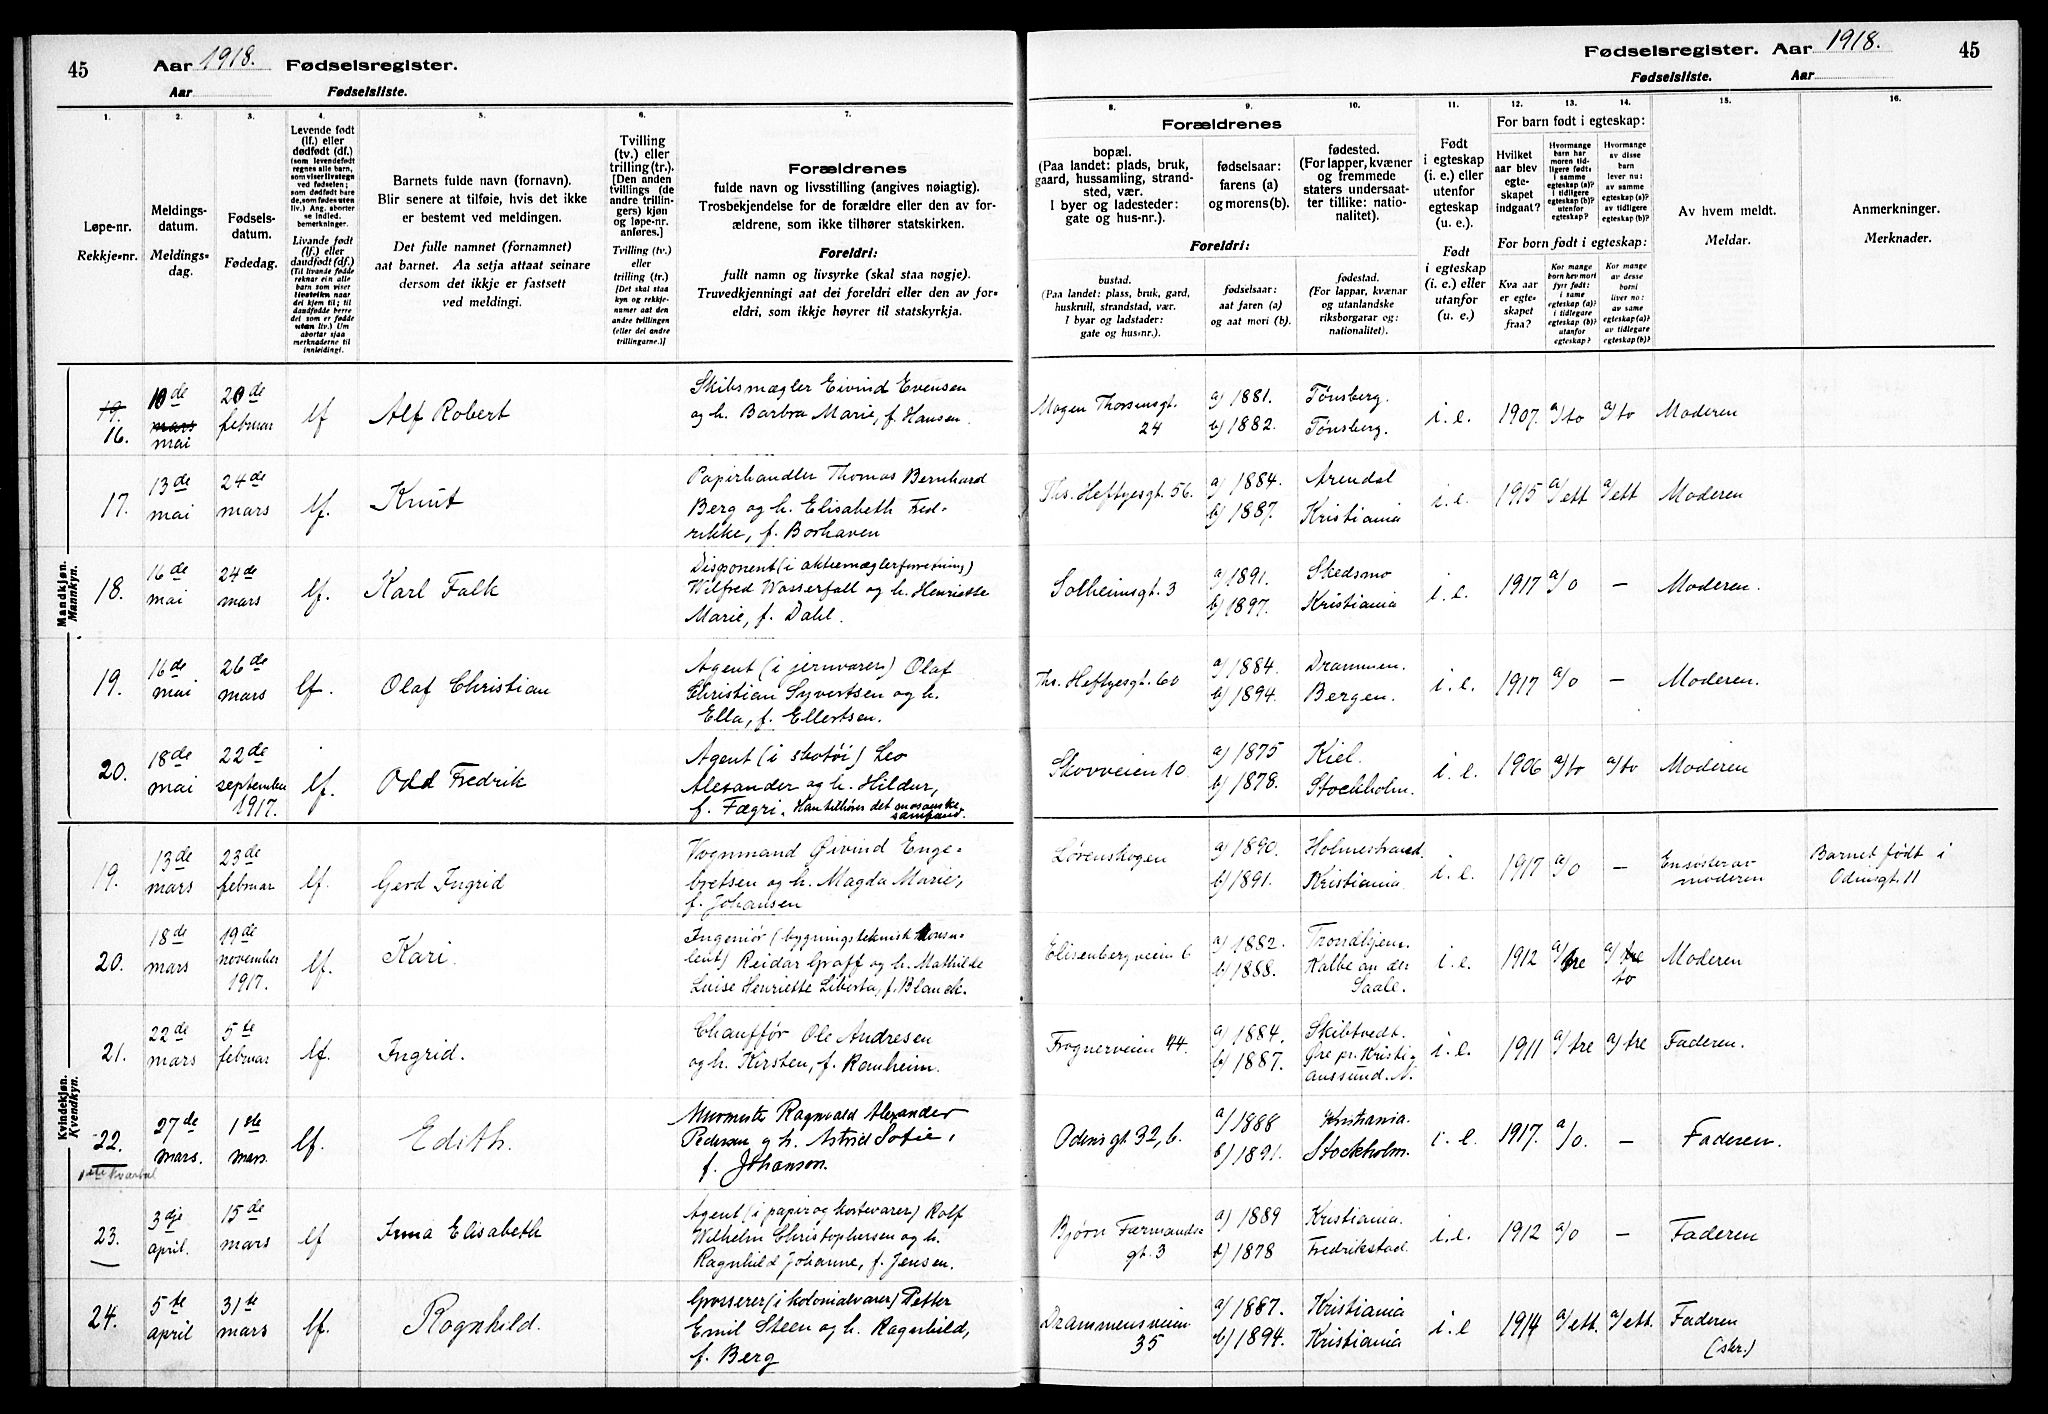 45
Aar 1918. Fødselsregister.
Aar Fødselsliste.
1.
2.
3.
4.
5.
6.
7.
Løpe-nr.
Rekkje-nr.
Meldings-
datum.
Meldings-
dag.
Fødsels-
datum.
Fødedag.
Levende født
(lf.) eller
dødfødt (df.)
Livande født
(lf.) eller
daudfødt (df.)
Barnets fulde navn (fornavn).
Blir senere at tilføie, hvis det ikke
er bestemt ved meldingen.
Det fulle namnet (fornamnet)
aat barnet. Aa setja attaat seinare
dersom det ikkje er fastsett
ved meldingi.
Tvilling
(tv.) eller
trilling (tr.).
[Den anden
tvillings (de
andre trillin-
gers) kjøn
og løpe-nr.
anføres.]
Tvilling (tv.)
eller
trilling (tr.)
[Det skal staa
kyn og rekkje-
numer aat den
andre tvillingen
(eller dei andre
trillingarne.)]
Forældrenes
fulde navn og livsstilling (angives nøiagtig).
Trosbekjendelse for de forældre eller den av for-
ældrene, som ikke tilhører statskirken.
Foreldri:
fullt namn og livsyrke (skal staa nøgje).
Truvedkjenningi aat dei foreldri eller den av for-
eldri, som ikkje høyrer til statskyrkja.
Mandkjøn.
Mannkyn.
19.
16. 10de mars mai 20de februar lf Alf Robert Skibsmægler Eivind Evensen
og h. Barbra Marie, f. Hansen.
17. 13de mai 24de mars lf. Knut Papirhandler Thomas Bernhard
Berg og h. Elisabeth Fred-
rikke, f. Borhaven
18. 16de mai 24de mars lf. Karl Falk Disponent (i aktiemæglerforretning)
Wilfred Wasserfall og h. Henriette
Marie, f. Dahl.
19. 16de mai 26de mars lf. Olaf Christian Agent (i jernvarer) Olaf
Christian Syvertsen og h.
Ella, f. Ellertsen.
20. 18de mai 22de september 1917. lf. Odd Fredrik Agent (i skotøi) Leo
Alexander og h. Hildur,
f. Fægri. Han tilhører det mosaiske
samfund.
Kvindekjøn.
Kvendkyn.
19. 13de mars 23de februar lf. Gerd Ingrid Vognmand Øivind Enge-
bretsen og h. Magda Marie,
f. Johansen
20. 18de mars 19de november 1917. lf. Kari. Ingeniør (bygningsteknisk konsu-
lent) Reidar Graff og h. Mathilde
Luise Henriette Liberta, f. Blanck.
21. 22de mars 5te februar lf. Ingrid. Chauffør Ole Andresen
og h. Kirsten, f. Ramheim.
22. 27de mars. 1ste mars. lf. Edith. Murmester Ragnvald Alexander
Pedersen og h. Astrid Sofie,
f. Johanson.
1ste kvartal
23. 3dje april. 15de mars lf Irma Elisabeth Agent (i papir og kortevarer) Rolf
Wilhelm Christophersen og h.
Ragnhild Johanne, f. Jensen.
24. 5te april 31te mars lf. Ragnhild. Grosserer (i kolonialvarer) Petter
Emil Steen og h. Ragnhild,
f. Berg
Fødselsregister. Aar 1918.
45
Fødselsliste. Aar
8.
9.
10.
11.
12.
13.
14.
15.
16.
Forældrenes
bopæl.
(Paa landet: plads, bruk,
gaard, hussamling, strand-
sted, vær.
I byer og ladesteder:
gate og hus-nr.).
fødselsaar:
farens (a)
og morens (b).
fødested.
(For lapper, kvæner
og fremmede
staters undersaat-
ter tillike: natio-
nalitet).
Foreldri:
bustad.
(Paa landet: plass, bruk, gard,
huskrull, strandstad, vær.
I byar og ladstader:
gate og hus-nr.).
fødselsaar:
aat faren (a)
og aat mori (b).
fødestad.
(For lappar, kvænar
og utanlandske
riksborgarar og:
nationalitet).
Født
i egteskap
(i. e.) eller
utenfor
egteskap
(u. e.).
Født
i egteskap
(i. e.) eller
utanfor
(u. e.)
For barn født i egteskap:
Hvilket
aar blev
egte-
skapet
indgaat?
For born født i egteskap:
Kva aar
er egte-
skapet
fraa?
Av hvem meldt.
Meldar.
Anmerkninger.
Merknader.
Mogen Thorsensgt. 24 a) 1881. b) 1882. Tønsberg. Tønsberg. i. e. 1907. a/to a/to Moderen
Ths. Heftyesgt. 56. a) 1884. b) 1887. Arendal Kristiania i. e. 1915 a/ett a/ett Moderen
Solheimsgt. 3 a) 1891. b) 1897. Skedsmo Kristiania i. e. 1917 a/o — Moderen.
Ths. Heftyesgt. 60 a) 1884. b) 1894. Drammen. Bergen. i. e. 1917 a/o — Moderen.
Skovveien 10 a) 1875 b) 1878. Kiel. Stockholm. i. e. 1906 a/to a/to Moderen
Lørenskogen a) 1890. b) 1891. Holmestrand. Kristiania. i. e. 1917 a/o — En søster av
moderen Barnet født i
Odinsgt. 11
Elisenbergveien 6 a) 1882. b) 1888. Trondhjem. Kalbe an der
Saale. i. e. 1912 a/tre a/tre to Moderen
Frognerveien 44. a) 1884. b) 1887. Skibtvedt. Øre pr. Kristi-
anssund. N. i. e. 1911 a/tre a/tre Faderen.
Odinsgt 32, b. a) 1888 b) 1891. Kristiania. Stockholm. i. e. 1917. a/o. — Faderen.
Bjørn Farmands
gt. 3 a) 1889 b) 1878 Kristiania. Fredrikstad. i. e. 1912 a/o — Faderen
Drammensveien
35 a) 1887. b) 1894. Kristiania Kristiania i. e 1914 a/ett. a/ett. Faderen
(skr.)